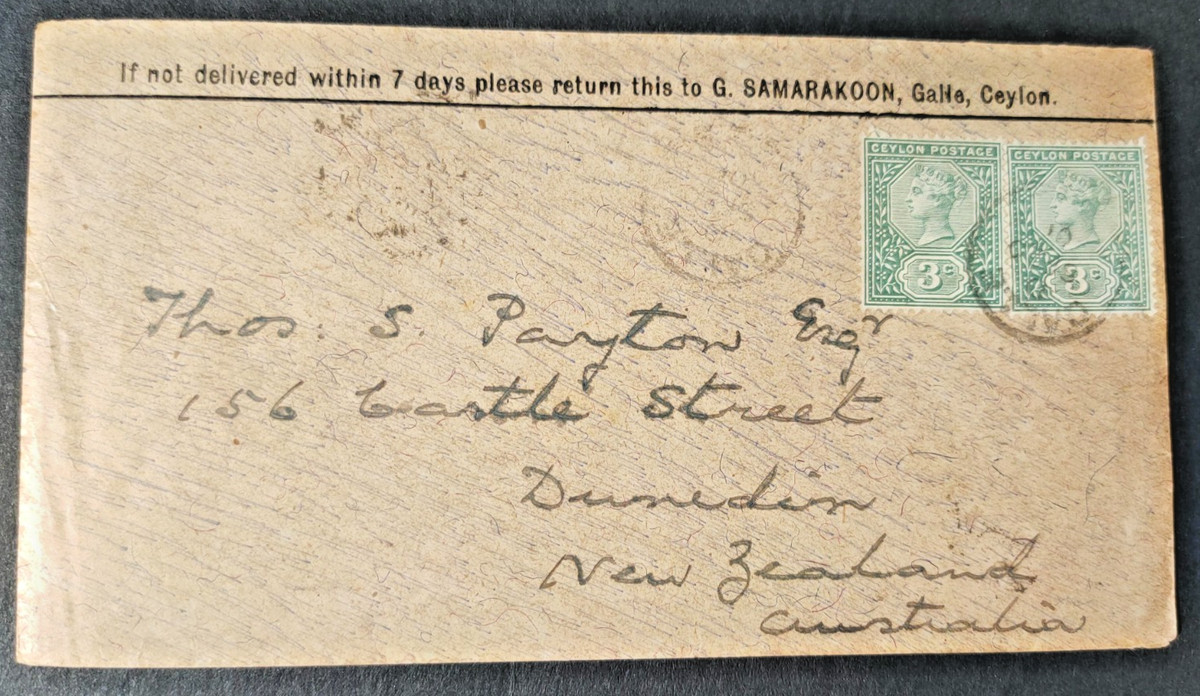 If not delivered within 7 days please return this to G. SAMARAKOON, Galle, Ceylon.
CEYLON POSTAGE CEYLON POSTAGE
3c 3c
Thos. S. Payton Esqr
156 Castle Street
Dunedin
New Zealand
Australia